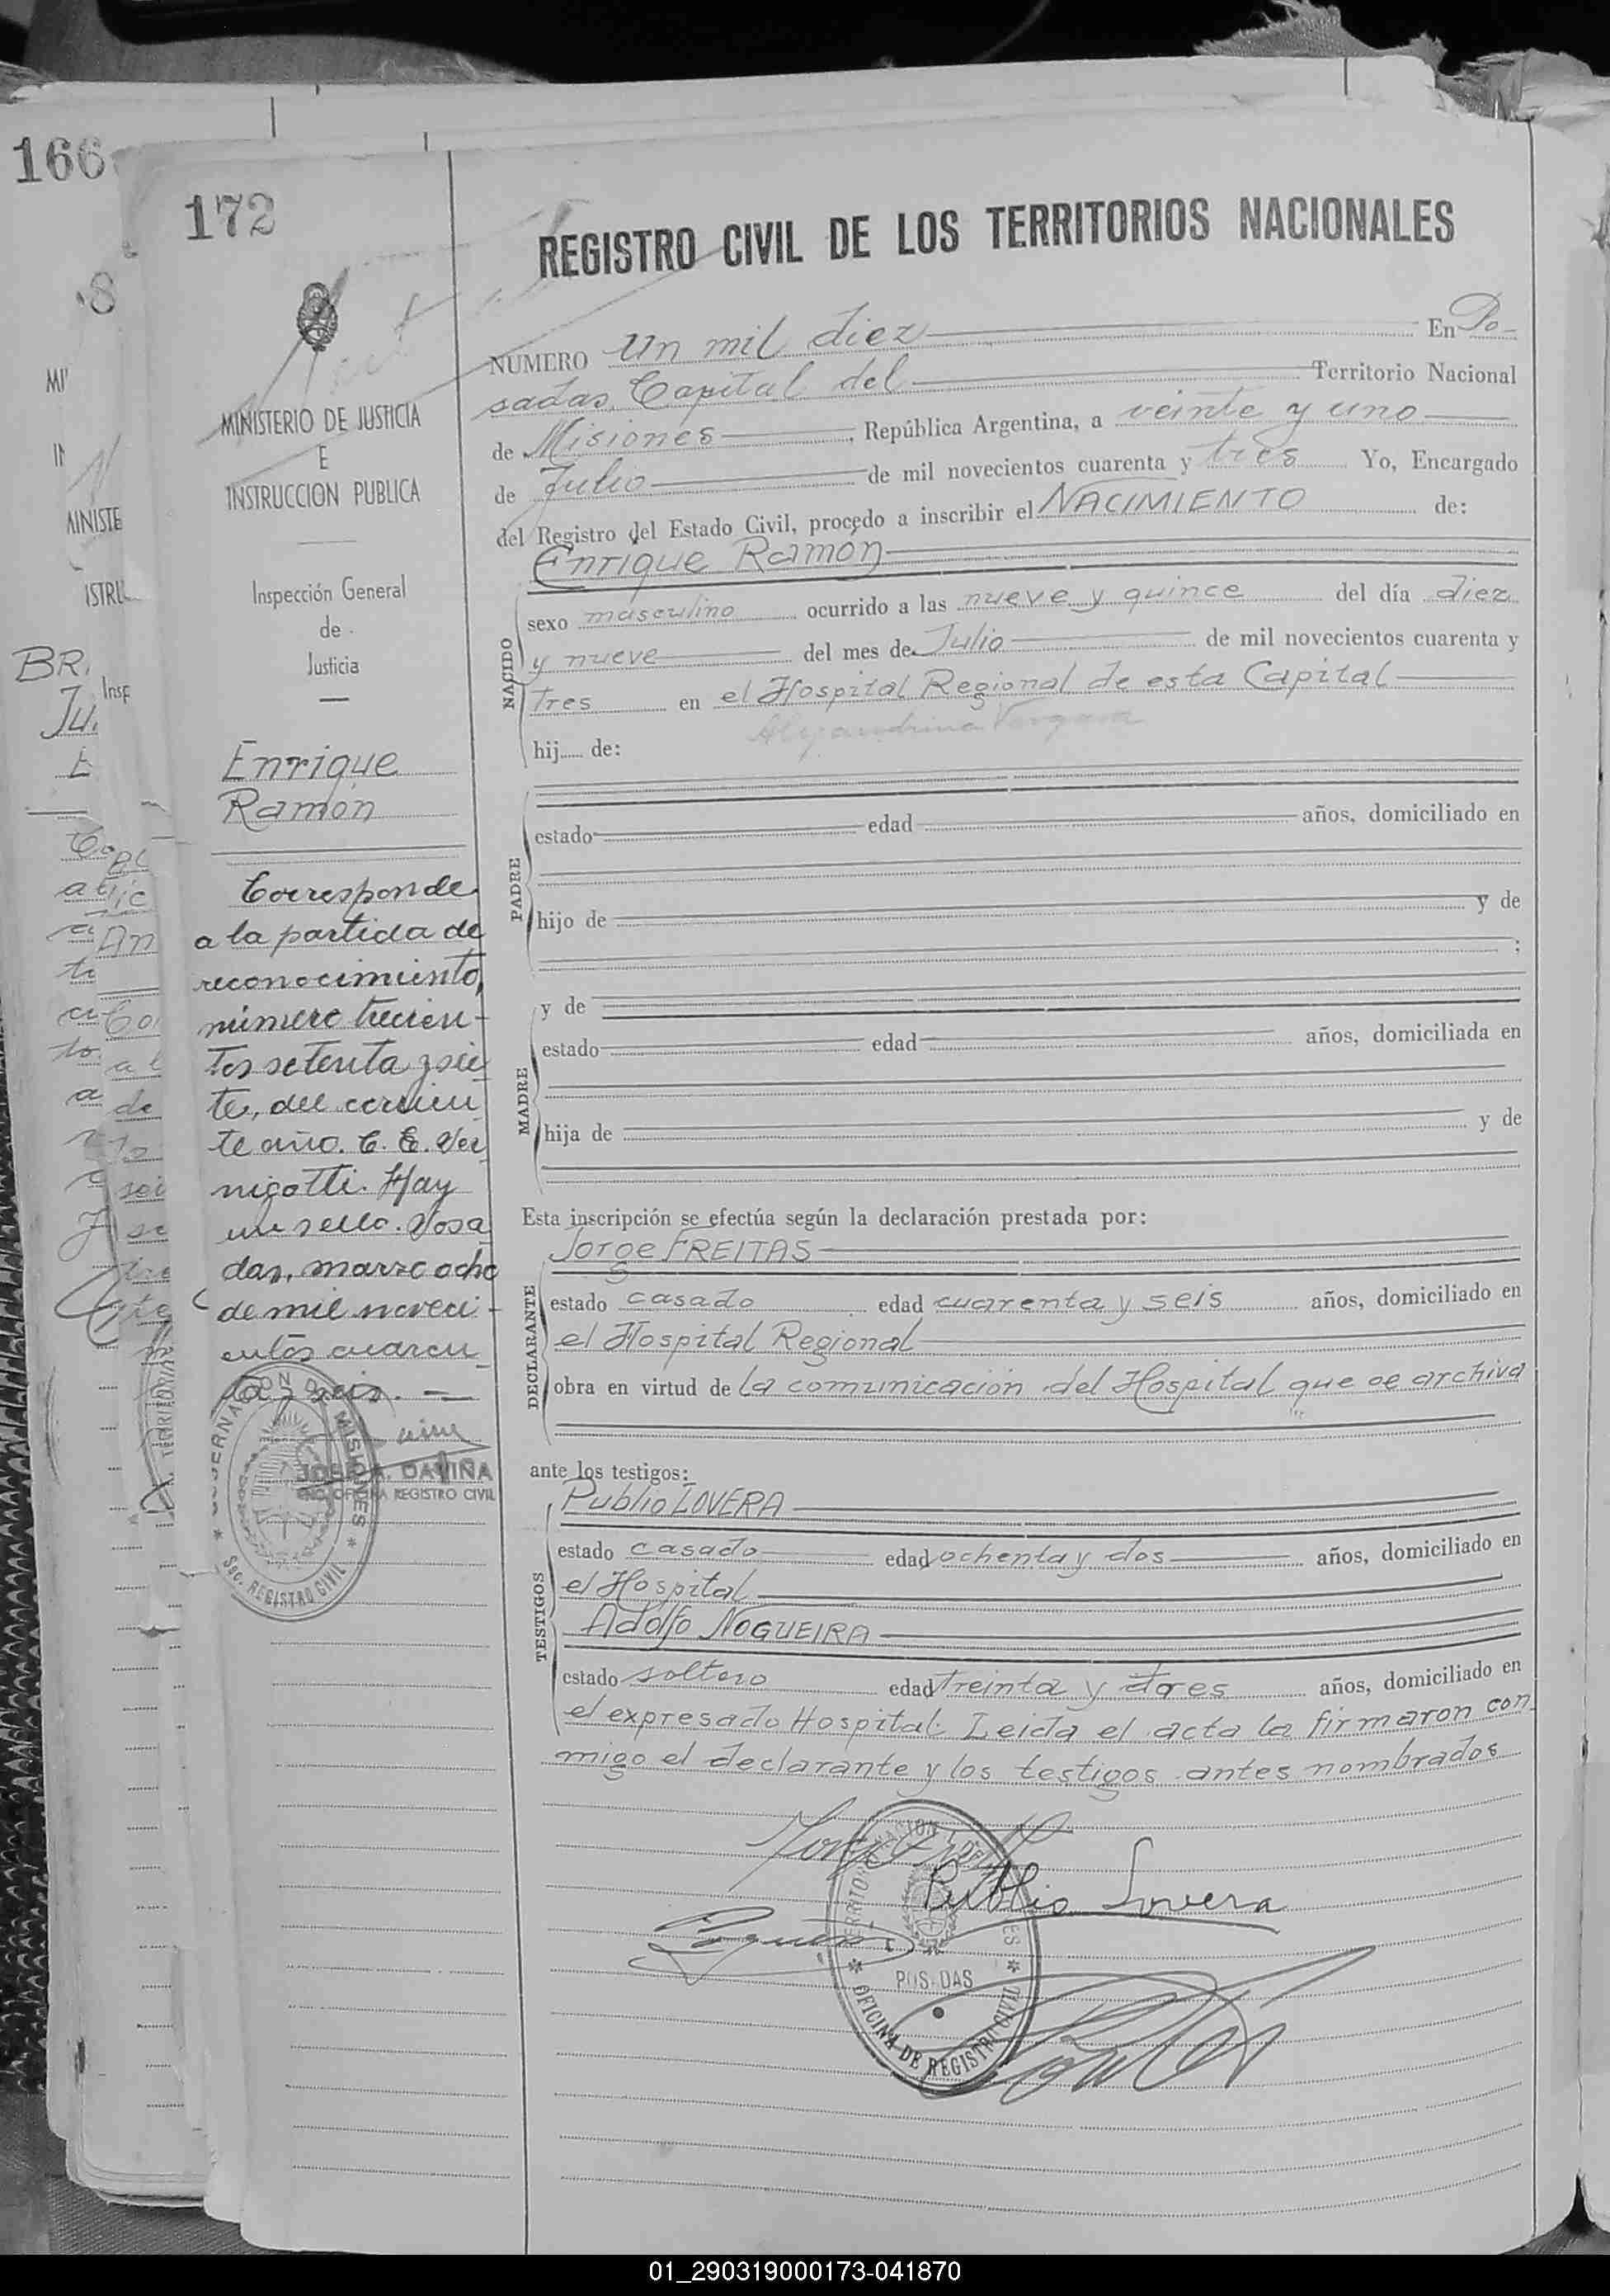 166
172
8
REGISTRO CIVIL DE LOS TERRITORIOS NACIONALES
MINISTERIO DE JUSTICIA
E
INSTRUCCION PUBLICA
Inspección General
de
Justicia
Enrique
Ramón
Corresponde
a la partida de
reconocimiento,
número trecien-
tos setenta y sie
te, del corrien
te año. C. E. Ver
nigotti. Hay
un sello. Posa
das, marzo ocho
de mil noveci-
entos cuaren
ta y seis. —
JOSE A. DAVIÑA
OFICINA REGISTRO CIVIL
GOBERNACION DE MISIONES
Sec. REGISTRO CIVIL
NUMERO Un mil diez En Po-
sadas, Capital del Territorio Nacional
de Misiones, República Argentina, a veinte y uno
de Julio de mil novecientos cuarenta y tres Yo, Encargado
del Registro del Estado Civil, procedo a inscribir el NACIMIENTO de:
Enrique Ramón
NACIDO
sexo masculino ocurrido a las nueve y quince del día diez
y nueve del mes de Julio de mil novecientos cuarenta y
tres en el Hospital Regional de esta Capital
Alejandrina Vergara
hij..... de:
PADRE
estado edad años, domiciliado en
hijo de y de
;
y de
MADRE
estado edad años, domiciliada en
hija de y de
Esta inscripción se efectúa según la declaración prestada por:
Jorge FREITAS
DECLARANTE
estado casado edad cuarenta y seis años, domiciliado en
el Hospital Regional
obra en virtud de la comunicación del Hospital que se archiva
ante los testigos:
Publio LOVERA
TESTIGOS
estado casado edad ochenta y dos años, domiciliado en
el Hospital
Adolfo NOGUEIRA
estado soltero edad treinta y dres años, domiciliado en
el expresado Hospital. Leida el acta la firmaron con
migo el declarante y los testigos antes nombrados
Publio Lovera
POSADAS
OFICINA DE REGISTRO CIVIL
01_290319000173-041870